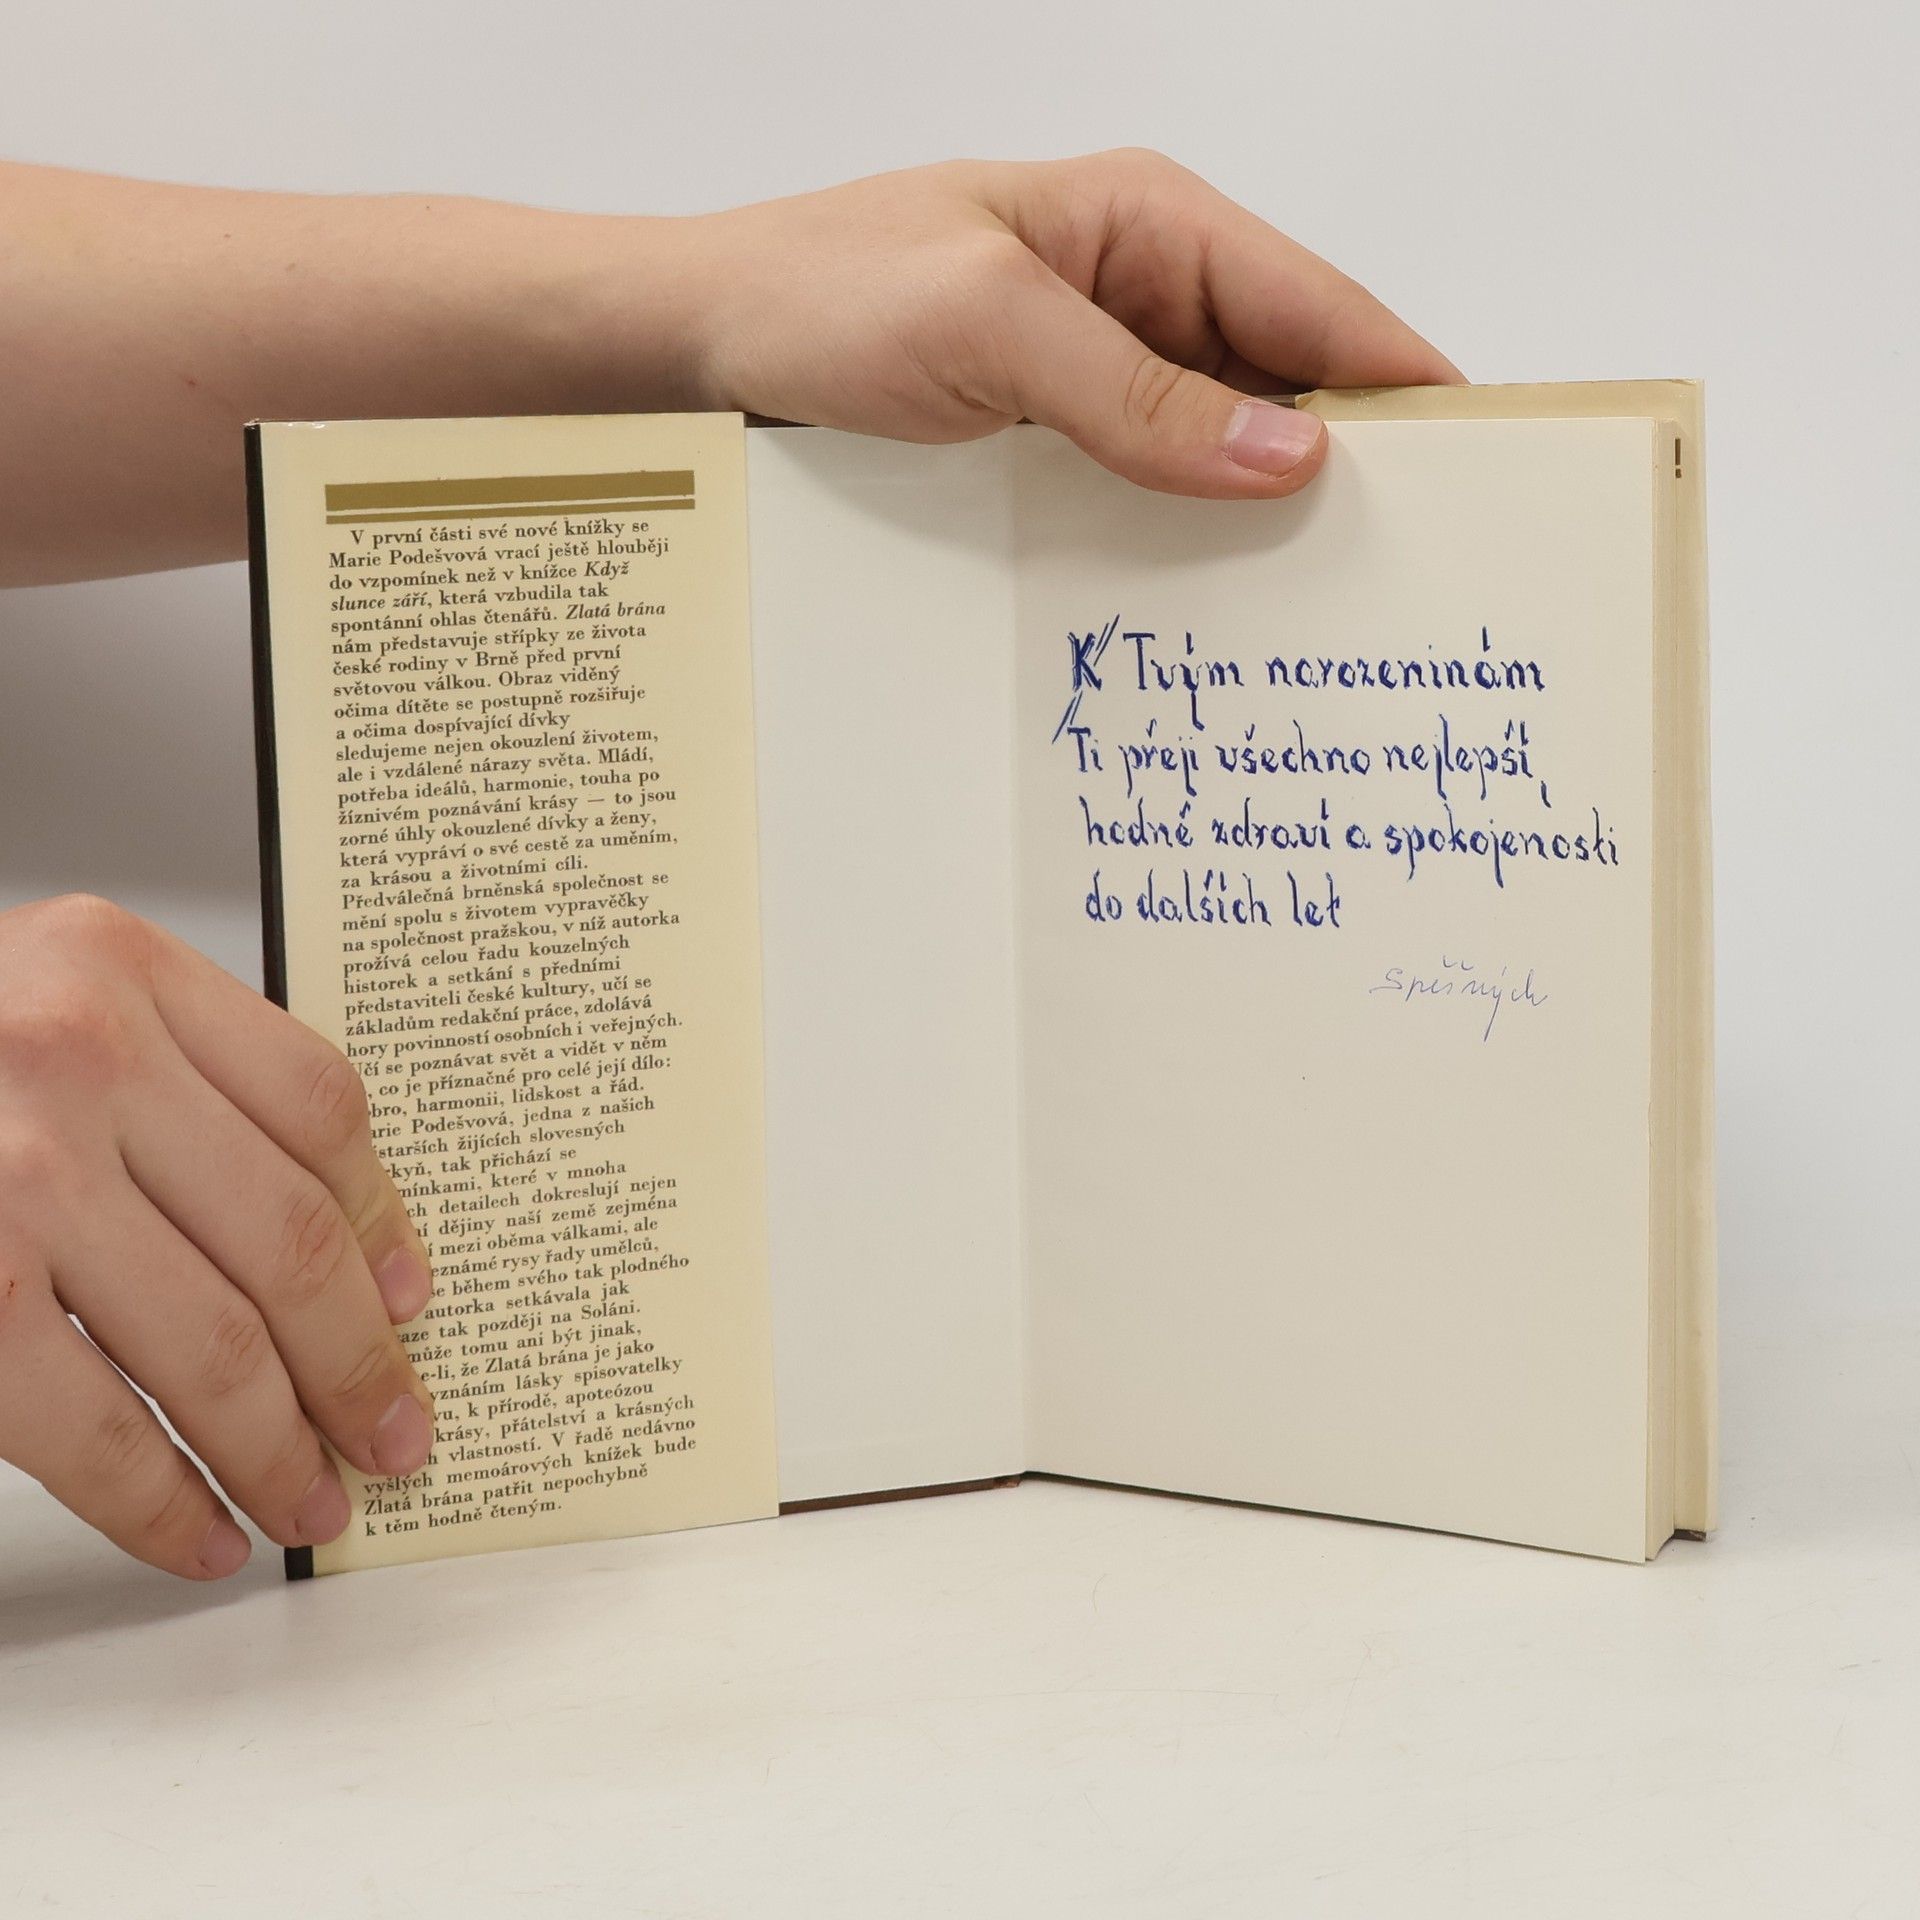 V první části své nové knížky se
Marie Podešvová vrací ještě hlouběji
do vzpomínek než v knížce Když
slunce září, která vzbudila tak
spontánní ohlas čtenářů. Zlatá brána
nám představuje střípky ze života
české rodiny v Brně před první
světovou válkou. Obraz viděný
očima dítěte se postupně rozšiřuje
a očima dospívající dívky
sledujeme nejen okouzlení životem,
ale i vzdálené nárazy světa. Mládí,
potřeba ideálů, harmonie, touha po
žíznivém poznávání krásy — to jsou
zorné úhly okouzlené dívky a ženy,
která vypráví o své cestě za uměním,
za krásou a životními cíli.
Předválečná brněnská společnost se
mění spolu s životem vypravěčky
na společnost pražskou, v níž autorka
prožívá celou řadu kouzelných
historek a setkání s předními
představiteli české kultury, učí se
základům redakční práce, zdolává
hory povinností osobních i veřejných.
Učí se poznávat svět a vidět v něm
, co je příznačné pro celé její dílo:
bro, harmonii, lidskost a řád.
arie Podešvová, jedna z našich
starších žijících slovesných
kyň, tak přichází se
mínkami, které v mnoha
ch detailech dokreslují nejen
ní dějiny naší země zejména
í mezi oběma válkami, ale
eznámé rysy řady umělců,
se během svého tak plodného
autorka setkávala jak
aze tak později na Soláni.
může tomu ani být jinak,
e-li, že Zlatá brána je jako
yznáním lásky spisovatelky
vu, k přírodě, apoteózou
krásy, přátelství a krásných
h vlastností. V řadě nedávno
vyšlých memoárových knížek bude
Zlatá brána patřit nepochybně
k těm hodně čteným.
K Tvým narozeninám
Ti přeji všechno nejlepší,
hodně zdraví a spokojenosti
do dalších let
Spěšných